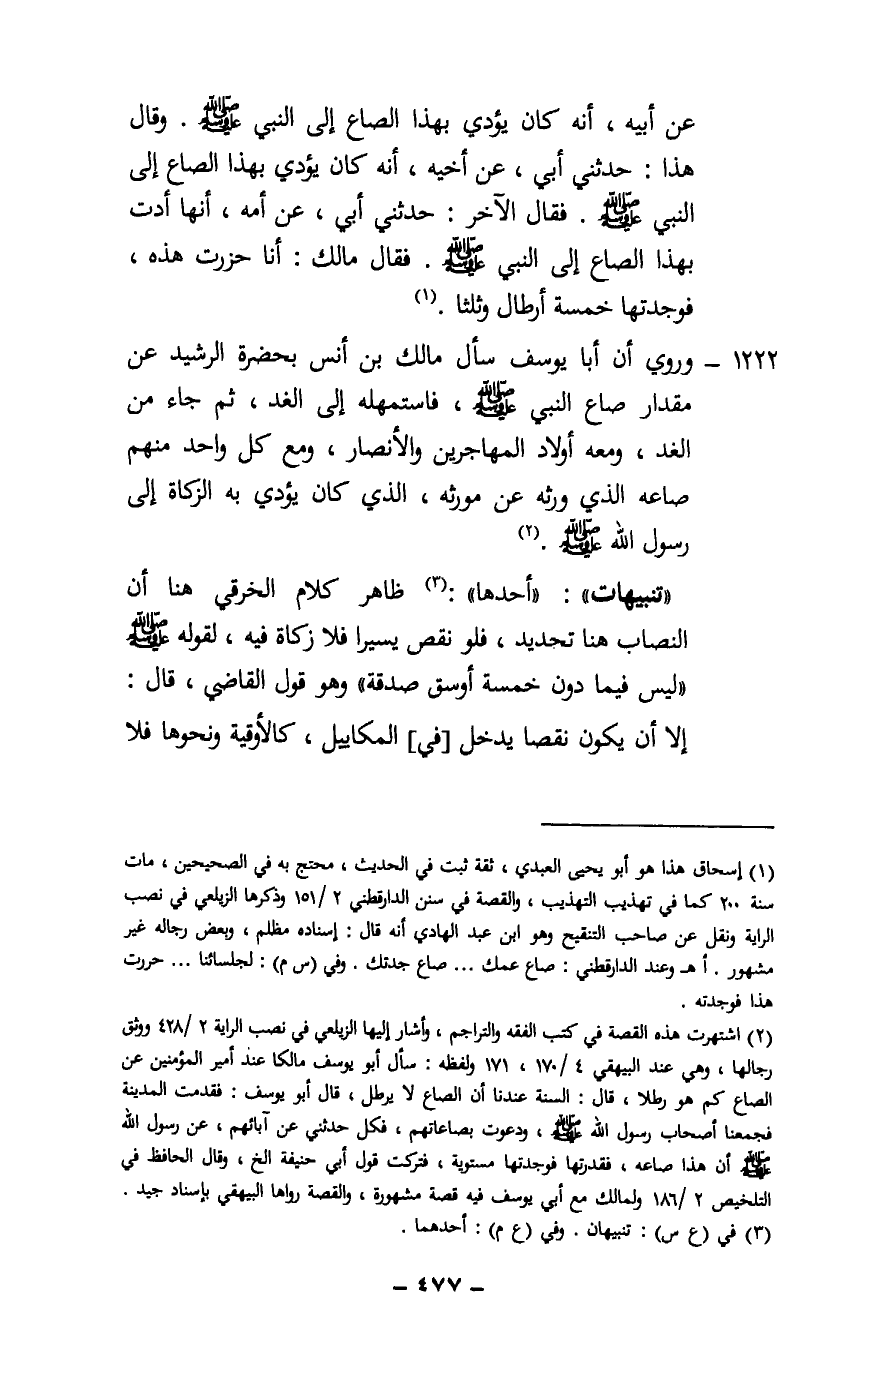 عن أبيه ، أنه كان يؤدي بهذا الصاع إلى النبي ﷺ . وقال
هذا : حدثني أبي ، عن أخيه ، أنه كان يؤدي بهذا الصاع إلى
النبي ﷺ . فقال الآخر : حدثني أبي ، عن أمه ، أنها أدت
بهذا الصاع إلى النبي ﷺ . فقال مالك : أنا حزرت هذه ،
فوجدتها خمسة أرطال وثلثا .(١)
١٢٢٢ – وروي أن أبا يوسف سأل مالك بن أنس بحضرة الرشيد عن
مقدار صاع النبي ﷺ ، فاستمهله إلى الغد ، ثم جاء من
الغد ، ومعه أولاد المهاجرين والأنصار ، ومع كل واحد منهم
صاعه الذي ورثه عن مورثه ، الذي كان يؤدي به الزكاة إلى
رسول الله ﷺ .(٢)
«تنبيهات» : «أحدها» :(٣) ظاهر كلام الخرقي هنا أن
النصاب هنا تحديد ، فلو نقص يسيرا فلا زكاة فيه ، لقوله ﷺ
«ليس فيما دون خمسة أوسق صدقة» وهو قول القاضي ، قال :
إلا أن يكون نقصا يدخل [في] المكاييل ، كالأوقية ونحوها فلا
(١) إسحاق هذا هو أبو يحيى العبدي ، ثقة ثبت في الحديث ، محتج به في الصحيحين ، مات
سنة ٢٠٠ كما في تهذيب التهذيب ، والقصة في سنن الدارقطني ٢ /١٥١ وذكرها الزيلعي في نصب
الراية ونقل عن صاحب التنقيح وهو ابن عبد الهادي أنه قال : إسناده مظلم ، وبعض رجاله غير
مشهور . أ هـ وعند الدارقطني : صاع عمك ... صاع جدتك . وفي (س م) : لجلسائنا ... حررت
هذا فوجدته .
(٢) اشتهرت هذه القصة في كتب الفقه والتراجم ، وأشار إليها الزيلعي في نصب الراية ٢ /٤٢٨ ووثق
رجالها ، وهي عند البيهقي ٤ /١٧٠ ، ١٧١ ولفظه : سأل أبو يوسف مالكا عند أمير المؤمنين عن
الصاع كم هو رطلا ، قال : السنة عندنا أن الصاع لا يرطل ، قال أبو يوسف : فقدمت المدينة
فجمعنا أصحاب رسول الله ﷺ ، ودعوت بصاعاتهم ، فكل حدثني عن آبائهم ، عن رسول الله
ﷺ أن هذا صاعه ، فقدرتها فوجدتها مستوية ، فتركت قول أبي حنيفة الخ ، وقال الحافظ في
التلخيص ٢ /١٨٦ ولمالك مع أبي يوسف فيه قصة مشهورة ، والقصة رواها البيهقي بإسناد جيد .
(٣) في (ع س) : تنبيهان . وفي (ع م) : أحدهما .
– ٤٧٧ –